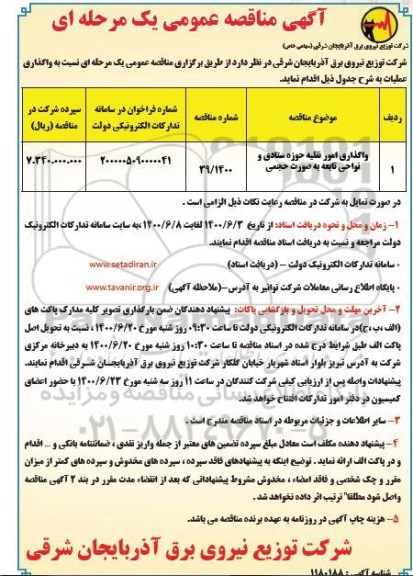 آگهی مناقصه عمومی یک مرحله ای
شرکت توزیع نیروی برق آذربایجان شرقی (سهامی خاص)
شرکت توزیع نیروی برق آذربایجان شرقی در نظر دارد از طریق برگزاری مناقصه عمومی یک مرحله ای نسبت به واگذاری
عملیات به شرح جدول ذیل اقدام نماید.
ردیف
موضوع مناقصه
شماره مناقصه
شماره فراخوان در سامانه
تدارکات الکترونیکی دولت
سپرده شرکت در
مناقصه (ریال)
۱
واگذاری امور نقلیه حوزه ستادی و
نواحی تابعه به صورت حجمی
۳۹/۱۴۰۰
۲۰۰۰۰۰۵۰۹۰۰۰۰۴۱
۷.۳۴۰.۰۰۰.۰۰۰
در صورت تمایل به شرکت در مناقصه رعایت نکات ذیل الزامی است .
۱- زمان و محل و نحوه دریافت اسناد: از تاریخ ۱۴۰۰/۶/۳ لغایت ۱۴۰۰/۶/۸ ،به سایت سامانه تدارکات الکترونیک
دولت مراجعه و نسبت به دریافت اسناد مناقصه اقدام نمایند.
- سامانه تدارکات الکترونیک دولت – (دریافت اسناد) www.setadiran.ir
- پایگاه اطلاع رسانی معاملات شرکت توانیر به آدرس-(ملاحظه آگهی) www.tavanir.org.ir
۲- آخرین مهلت و محل تحویل و بازگشایی پاکات: پیشنهاد دهندگان ضمن بارگذاری تصویر کلیه مدارک پاکت های
(الف ،ب ،ج)در سامانه تدارکات الکترونیکی دولت تا ساعت ۰۹:۳۰ روز شنبه مورخ ۱۴۰۰/۶/۲۰ ، نسبت به تحویل اصل
پاکت الف طبق شرایط درج شده در اسناد مناقصه تا ساعت ۱۰:۳۰ روز شنبه مورخ ۱۴۰۰/۶/۲۰ به دبیرخانه مرکزی
شرکت به آدرس تبریز بلوار استاد شهریار خیابان گلکار شرکت توزیع نیروی برق آذربایجان شرقی اقدام نمایند.
پیشنهادات واصله پس از ارزیابی کیفی شرکت کنندگان در ساعت ۱۱ روز سه شنبه مورخ ۱۴۰۰/۶/۲۳ با حضور اعضای
کمیسیون در دفتر امور تدارکات افتتاح خواهد شد.
۳- سایر اطلاعات و جزئیات مربوطه در اسناد مناقصه مندرج است .
۴- پیشنهاد دهنده مکلف است معادل مبلغ سپرده تضمین های معتبر از جمله واریز نقدی ، ضمانتنامه بانکی و ... اقدام
و در پاکت الف ارائه نماید . توضیح اینکه به پیشنهادهای فاقد سپرده ، سپرده های مخدوش و سپرده های کمتر از میزان
مقرر و چک شخصی و فاقد امضاء ، مخدوش مشروط پیشنهاداتی که بعد از انقضاء مدت مقرر در بند ۲ آگهی مناقصه
واصل شود مطلقا" ترتیب اثر داده نخواهد شد .
۵- هزینه چاپ آگهی در روزنامه به عهده برنده مناقصه می باشد.
شرکت توزیع نیروی برق آذربایجان شرقی
شناسه آگهی : ۱۱۸۰۱۸۸